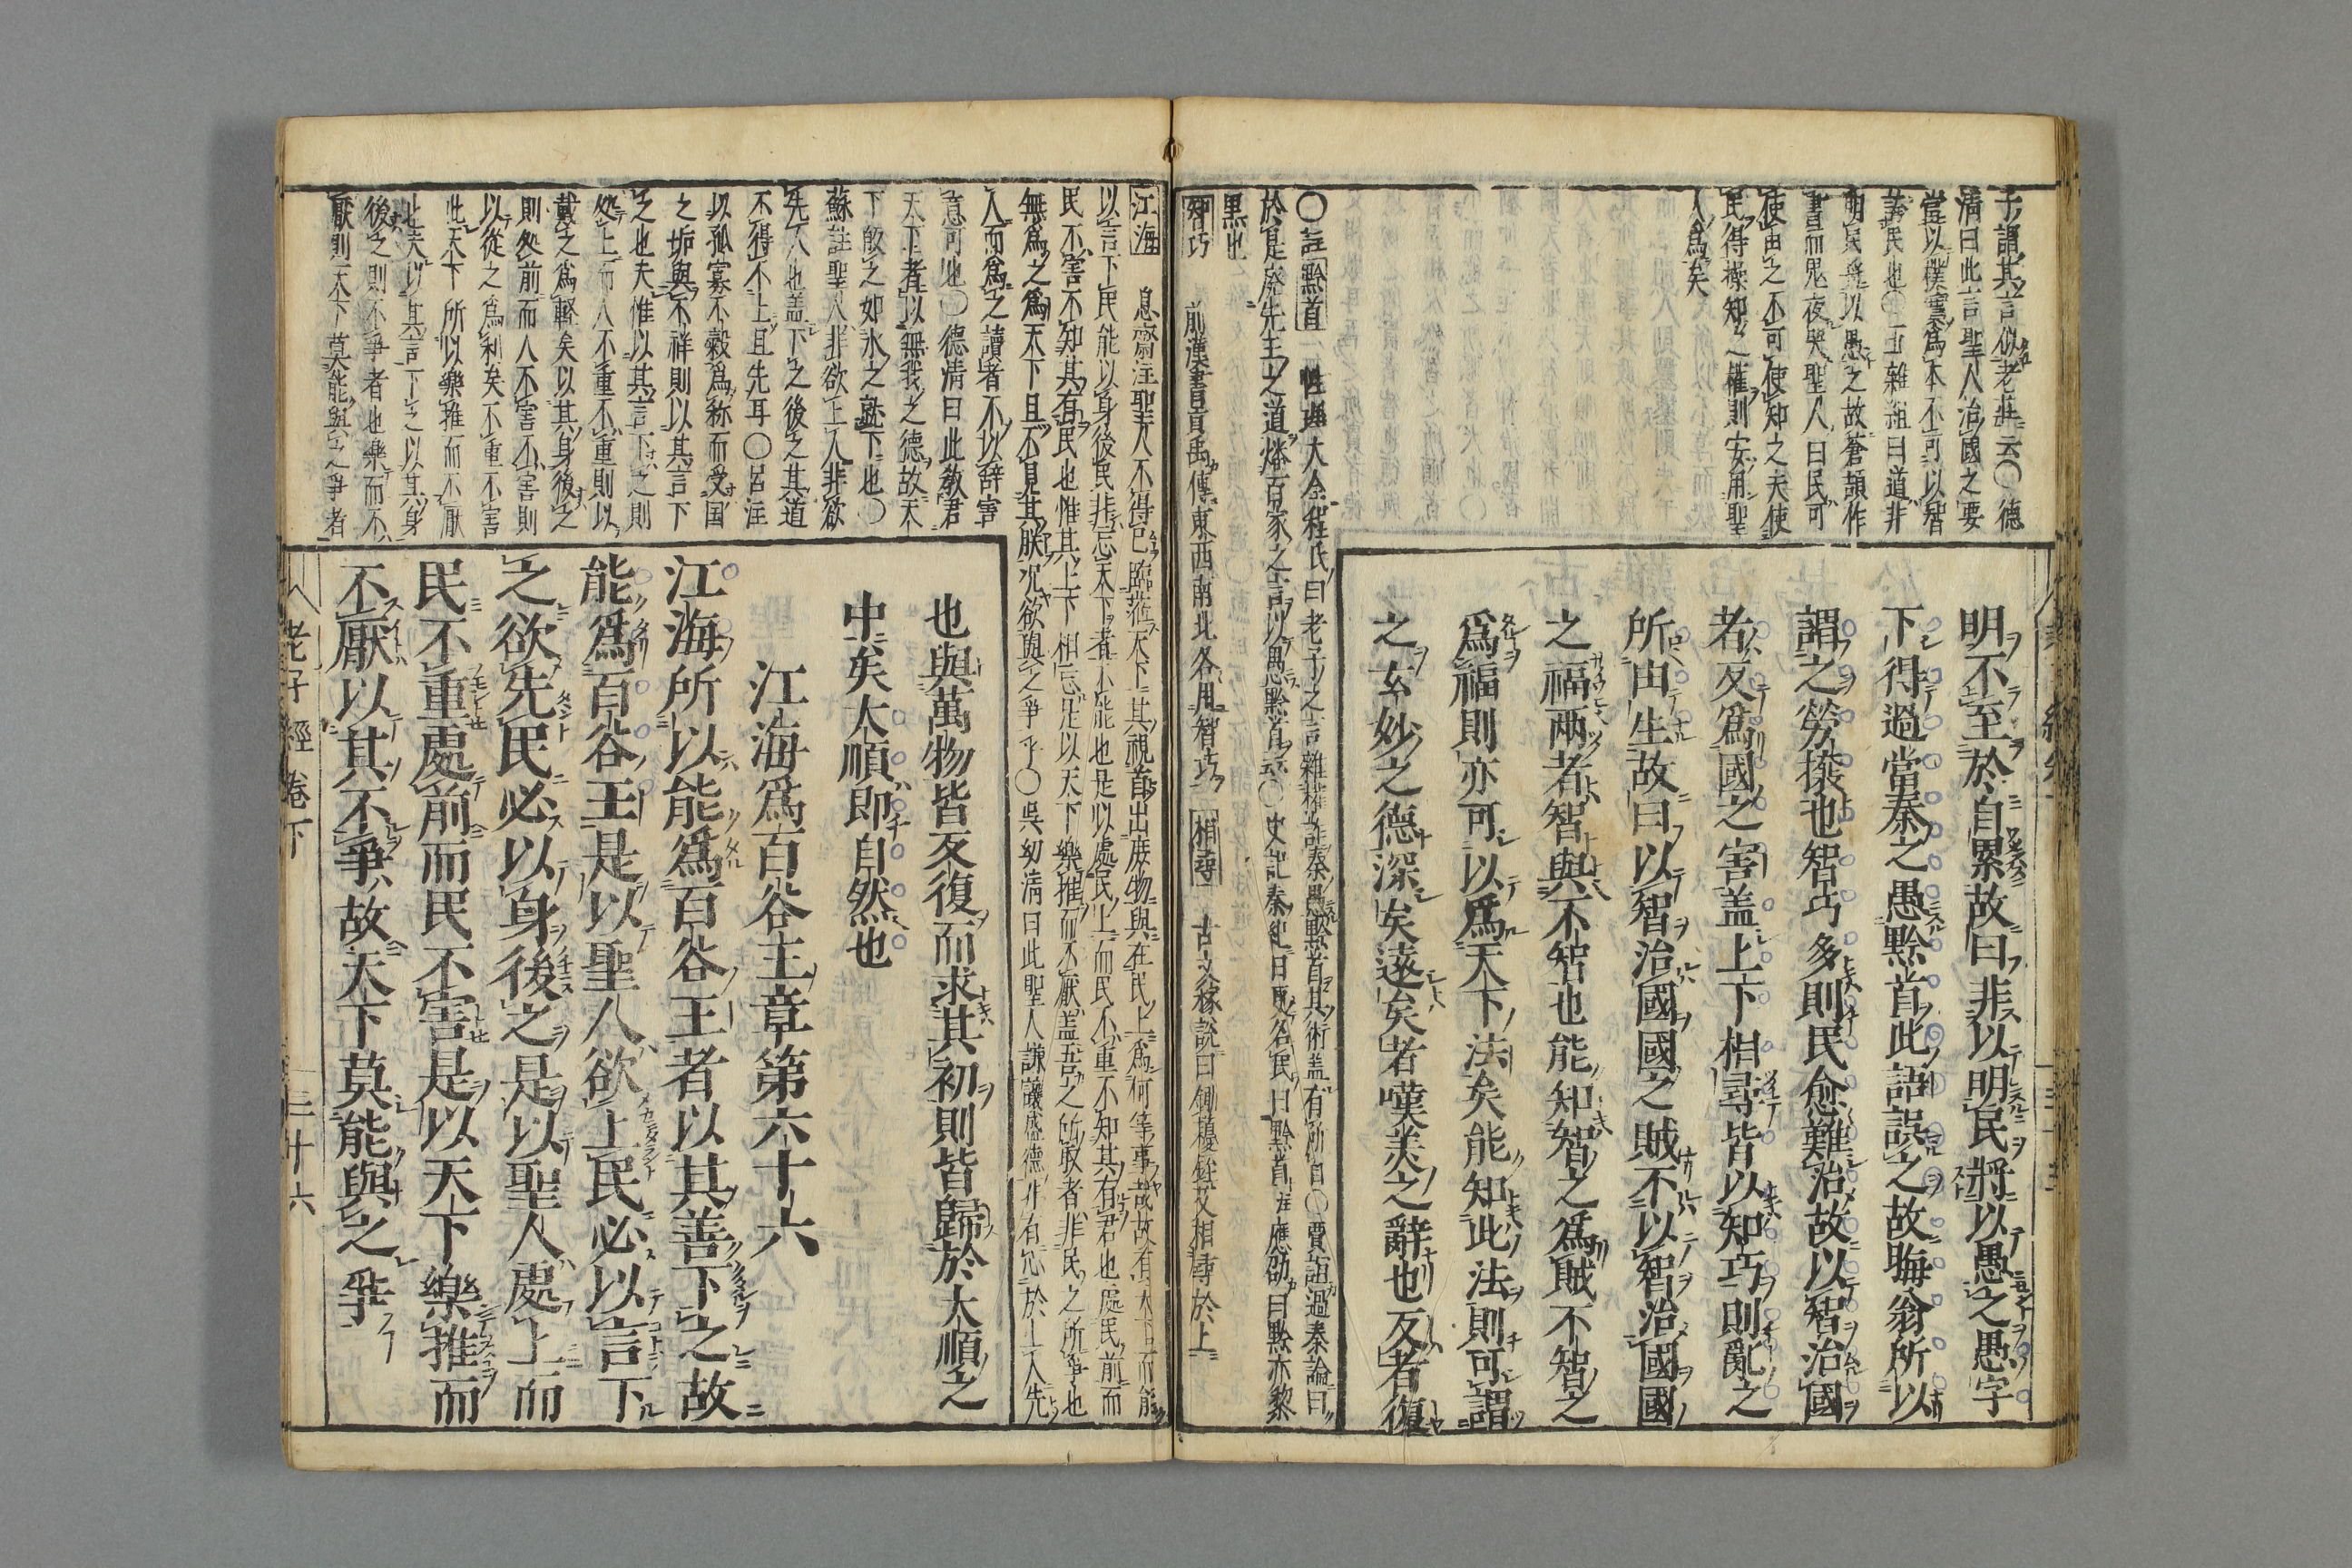 明不至於自累故曰非以明民將以愚之愚字
下得過當秦之愚黔首此語誤之故晦翁所以
謂之勞攘也智巧多則民愈難治故以智治國
者反爲國之害盖上下相尋皆以知巧則亂之
所由生故曰以智治國國之賊不以智治國國
之福兩者智與不智也能知智之爲賊不智之
爲福則亦可以爲天下法矣能知此法則可謂
之玄妙之德深矣遠矣者嘆美之辭也反者復
子謂其言似老莊云〇德
清曰此言聖人治國之要
當以樸實爲本不可以智
誇民也〇王雜組曰道非
明民將以愚之故蒼頡作
書而鬼夜哭聖人曰民可
使由之不可使知之夫使
民得操知之權則安用聖
人爲矣
〇註黔首 性理大全程氏曰老子之言雜權詐秦愚黔首其術盖有所自〇賈誼過秦論曰
於是廢先王之道燔百家之言以愚黔首云〇史記秦紀曰更名民曰黔首註應劭曰黔亦黎
黑也
智巧 前漢書貢禹傳東西南北各用智巧 相尋 古文稼說曰鋤耰銍艾相尋於上
江海 息齋注聖人不得已臨莅天下其視首出庶物與在民上爲何等事哉故有天下而能
以言下民能以身後民非忘天下者不能也是以處民上而民不重不知其有君也處民前而
民不害不知其有民也惟其上下相忘足以天下樂推而不厭盖吾之所取者非民之所爭也
無爲之爲天下且不見其朕况欲與之爭乎〇吳幼清曰此聖人謙讓盛德非有心於上人先
人而爲之讀者不以辭害
意可也〇德清曰此教君
天下者以無我之德故天
下歸之如水之就下也〇
蘇註聖人非欲上人非欲
先人也盖下之後之其道
不得不上且先耳〇呂注
以孤寡不穀爲称而受国
之垢與不祥則以其言下
之也夫惟以其言下之則
処上而人不重不重則以
戴之爲輕矣以其身後之
則処前而人不害不害則
以從之爲利矣不重不害
此天下所以樂推而不厭
也夫以其言下之以其身
後之則不爭者也樂而不
厭則天下莫能與之爭者
也與萬物皆反復而求其初則皆歸於大順之
中矣大順即自然也
江海爲百谷王章第六十六
江海所以能爲百谷王者以其善下之故
能爲百谷王是以聖人欲上民必以言下
之欲先民必以身後之是以聖人處上而
民不重處前而民不害是以天下樂推而
不厭以其不爭故天下莫能與之爭
老子經卷下 三十六